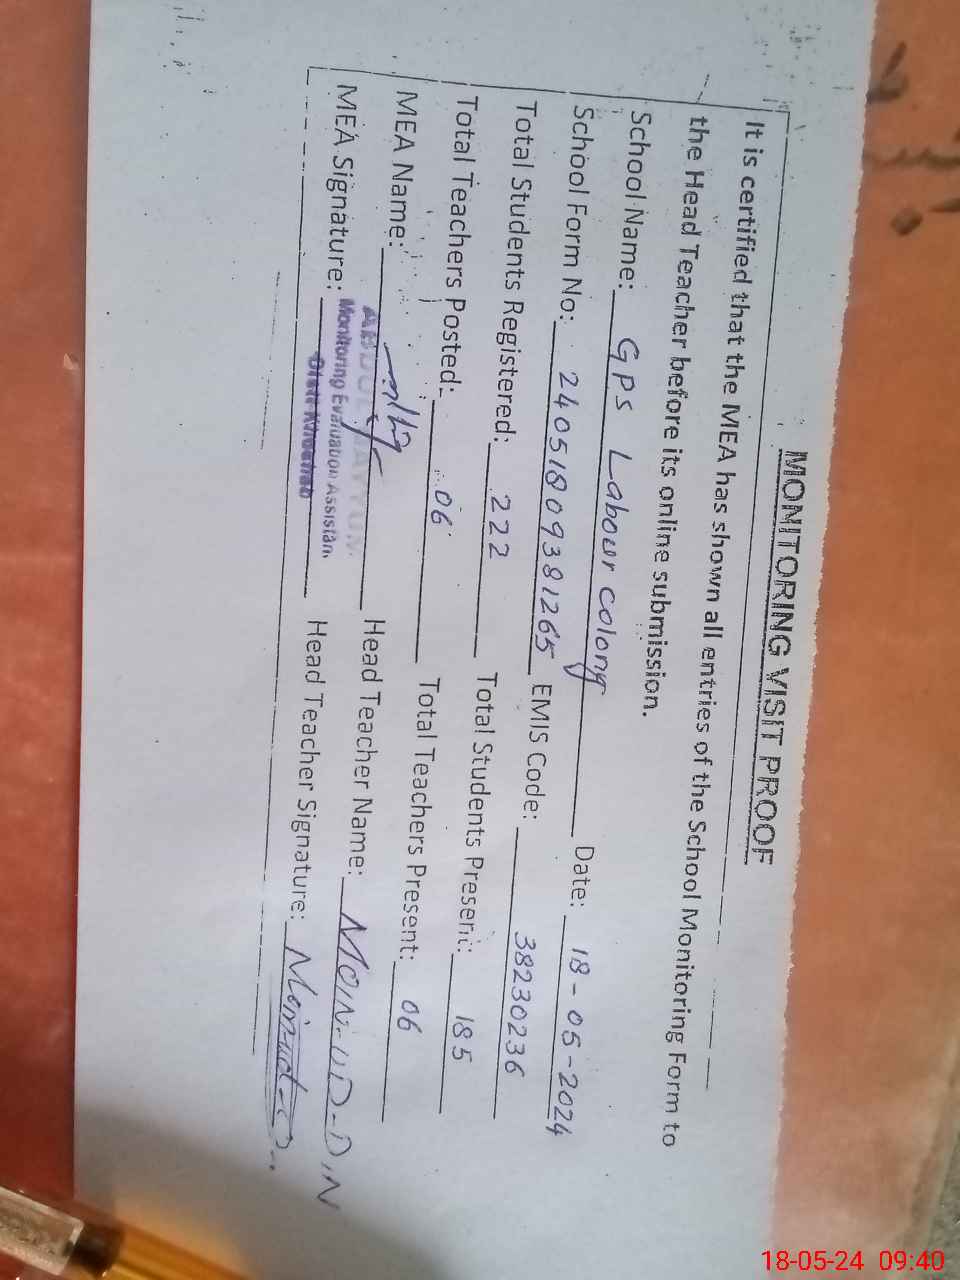 MONITORING VISIT PROOF
It is certified that the MEA has shown all entries of the School Monitoring Form to
the Head Teacher before its online submission.
School Name: GPS Labour colony Date: 18-05-2024
School Form No: 24051809381265 EMIS Code: 38230236
Total Students Registered: 222 Total Students Present: 185
Total Teachers Posted: 06 Total Teachers Present: 06
MEA Name: ABDUL Head Teacher Name: MOIN-UD-DIN
MEA Signature: Monitoring Evaluation Assistan Head Teacher Signature:
18-05-24 09:40